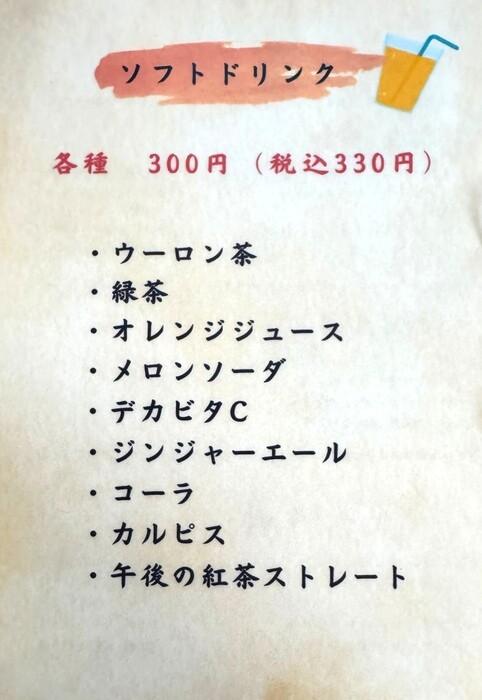 ソフトドリンク
各種　300円（税込330円）
・ウーロン茶
・緑茶
・オレンジジュース
・メロンソーダ
・デカビタC
・ジンジャーエール
・コーラ
・カルピス
・午後の紅茶ストレート